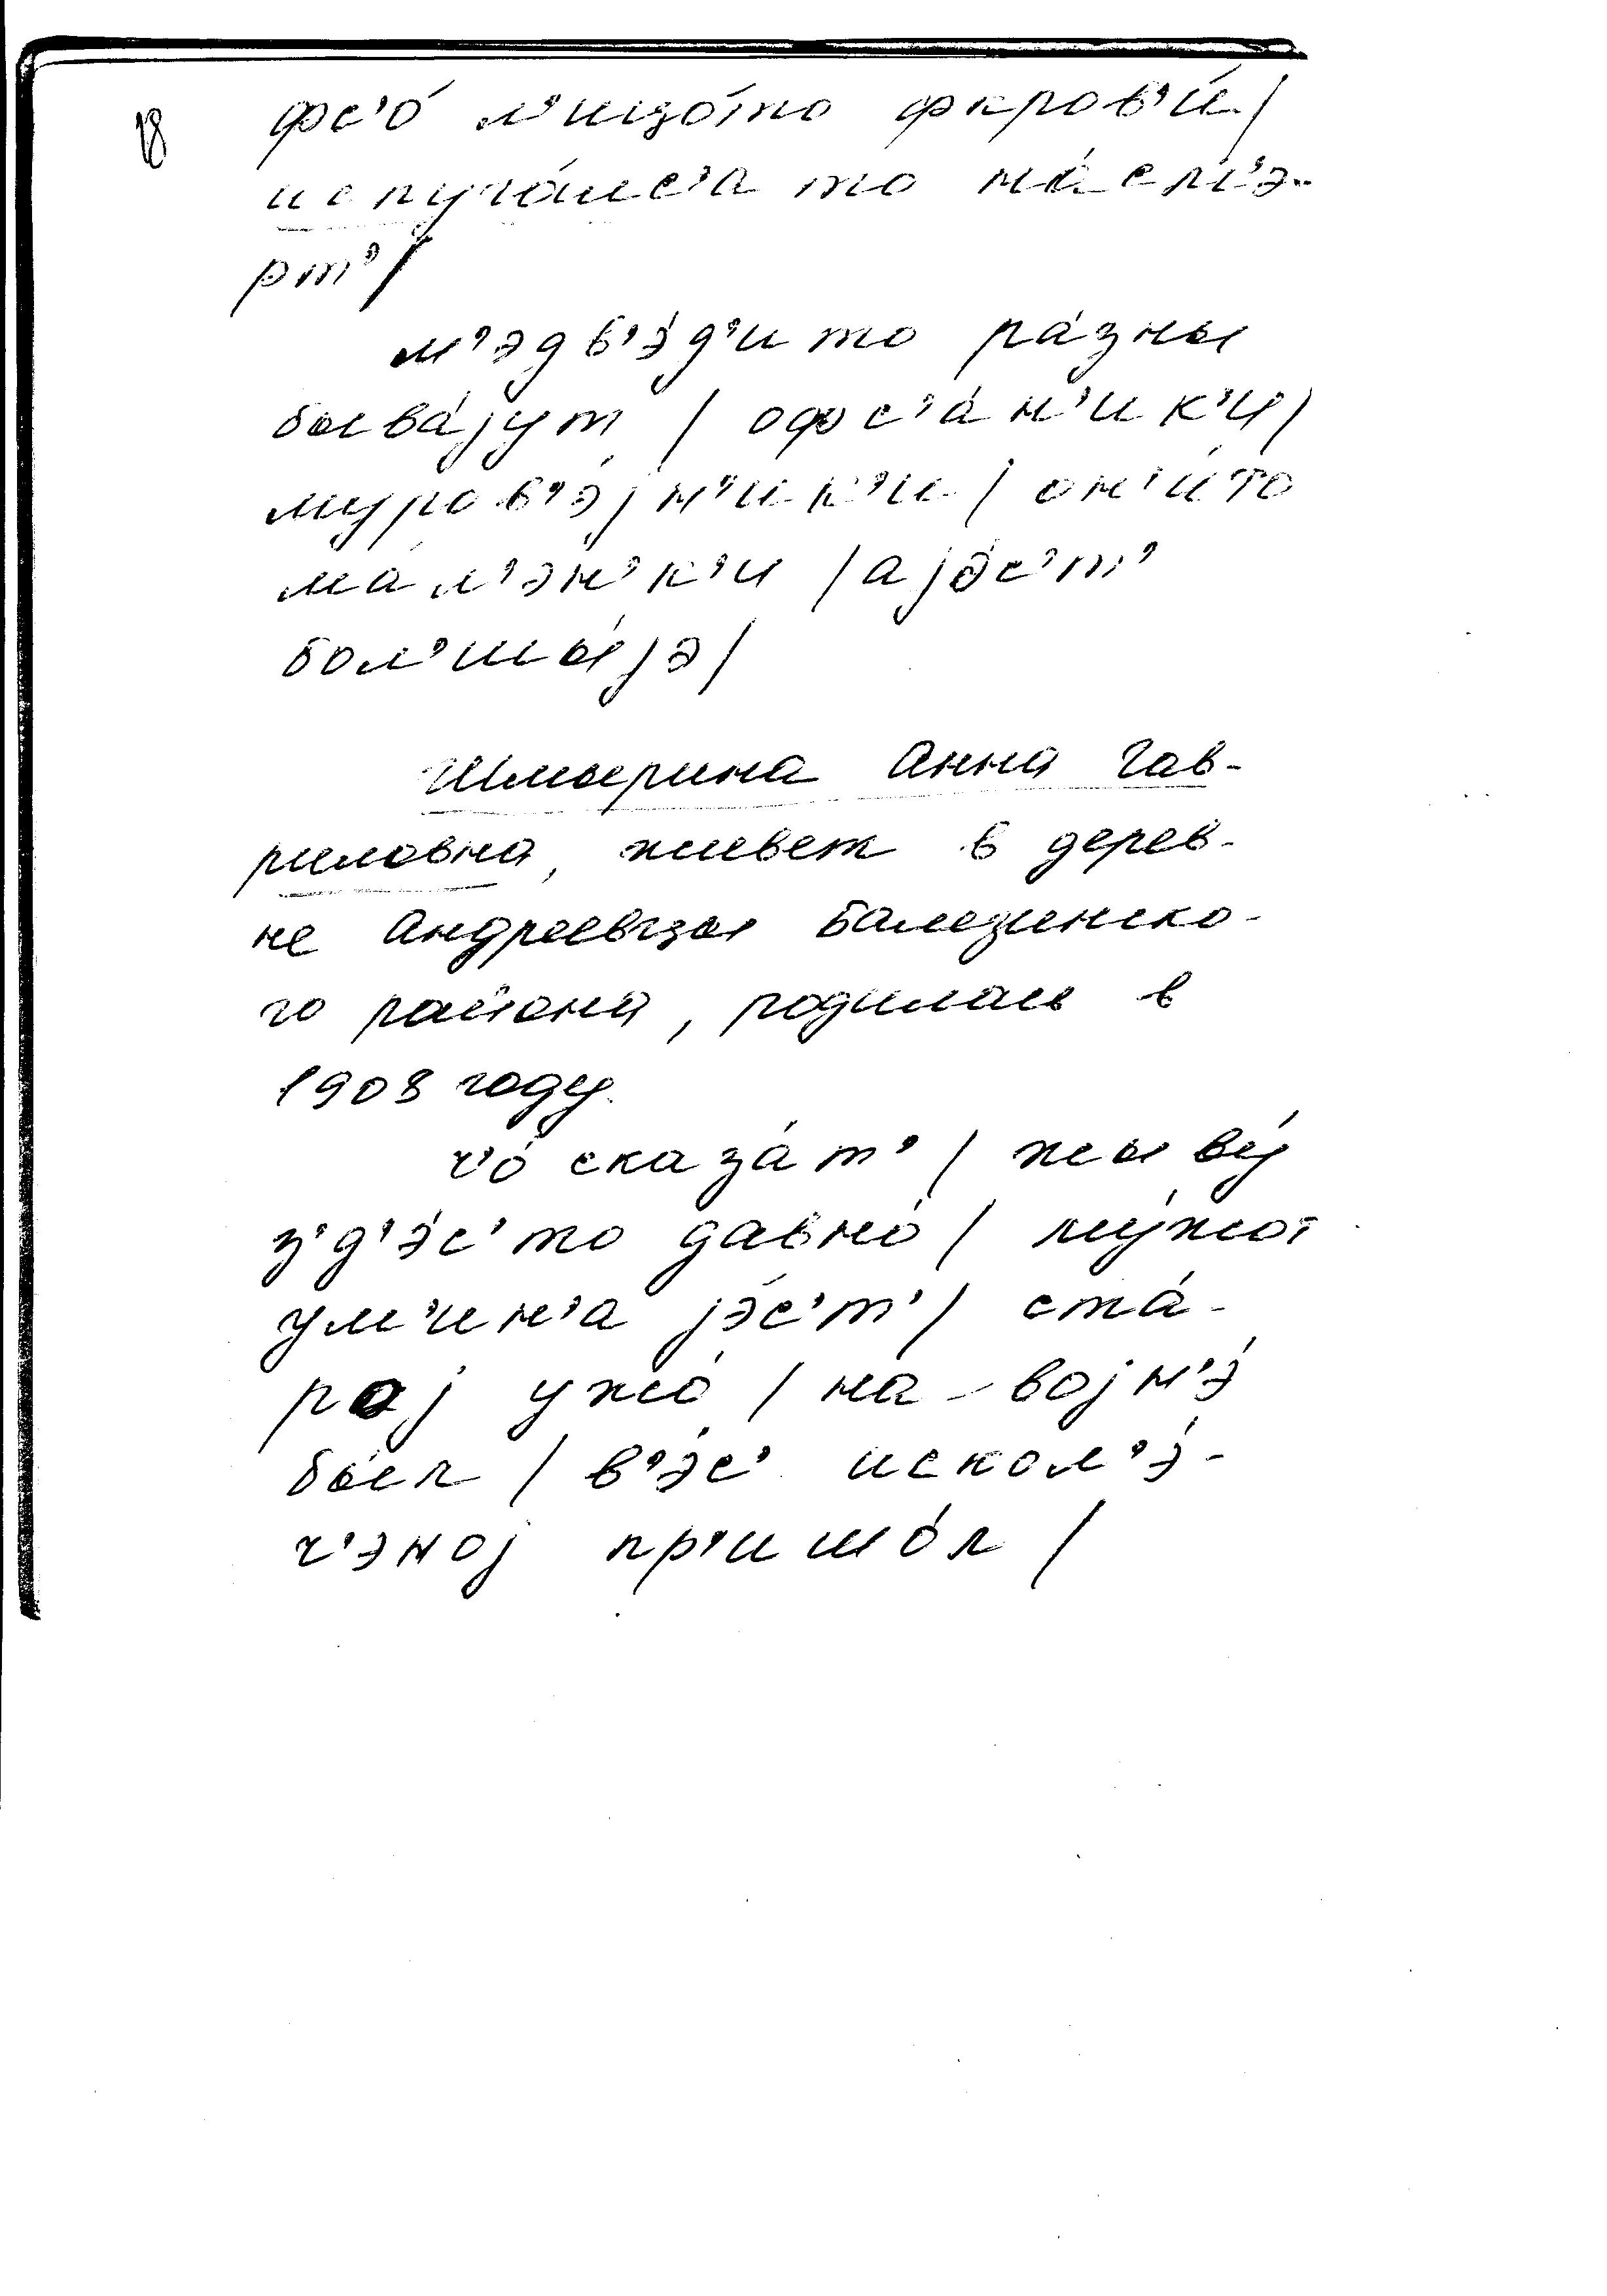 18
фс'о́ л'ицо́то фкров'и́ /
испуга́лс'а то на́ см'э-
рт' /
м'эдв'э́д'и то ра́зны
быва́јут / офс'а́н'ик'и /
муров'э́јн'ик'и / он'и́ то
ма́л'эн'к'и / а јэ́с'т'
бол'шы́јэ /
Шмырина Анна Гав-
риловна, живет в дерев-
не Андреевцы Балезинско-
го района, родилась в
1908 году.
ч'о́ сказа́т' / жыву́
з'д'э́с' то давно́ / му́жот
у м'ин'а јэ́с'т' / ста́-
рој ужо́ / на-војн'э́
бы́л / в'э́с' искол'э́-
ч'эној пр'ишо́л /